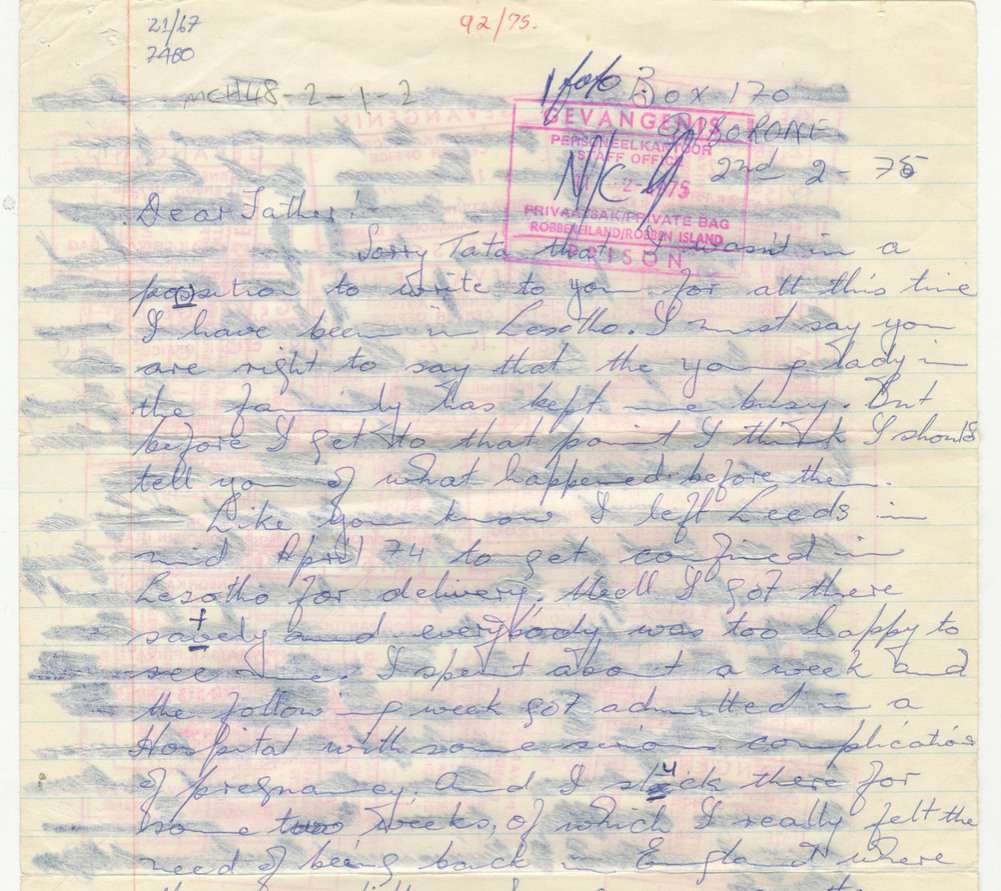 21/67
7480
92/75.
MCH48-2-1-2
1/0/0 Box 170
GEVANGENIS
GABORONE
PERSONEELKANTOOR
STAFF OFFICE
N/C
-2-1975
2nd 2-75
PRIVAATSAK/PRIVATE BAG
ROBBENEILAND/ROBBEN ISLAND
PRISON
Dear Father!
Sorry Tata that I wasn't in a
position to write to you for all this time
I have been in Lesotho. I must say you
are right to say that the young lady in
the family has kept me busy. But
before I get to that point I think I should
tell you of what happened before then.
Like you know I left Leeds in
mid April 74 to get confined in
Lesotho for delivery. Well I got there
safely and everybody was too happy to
see me. I spent about a week and
the following week got admitted in a
Hospital with some serious complication
of pregnancy. And I stuck there for
some two weeks, of which I really felt the
need of being back in England where